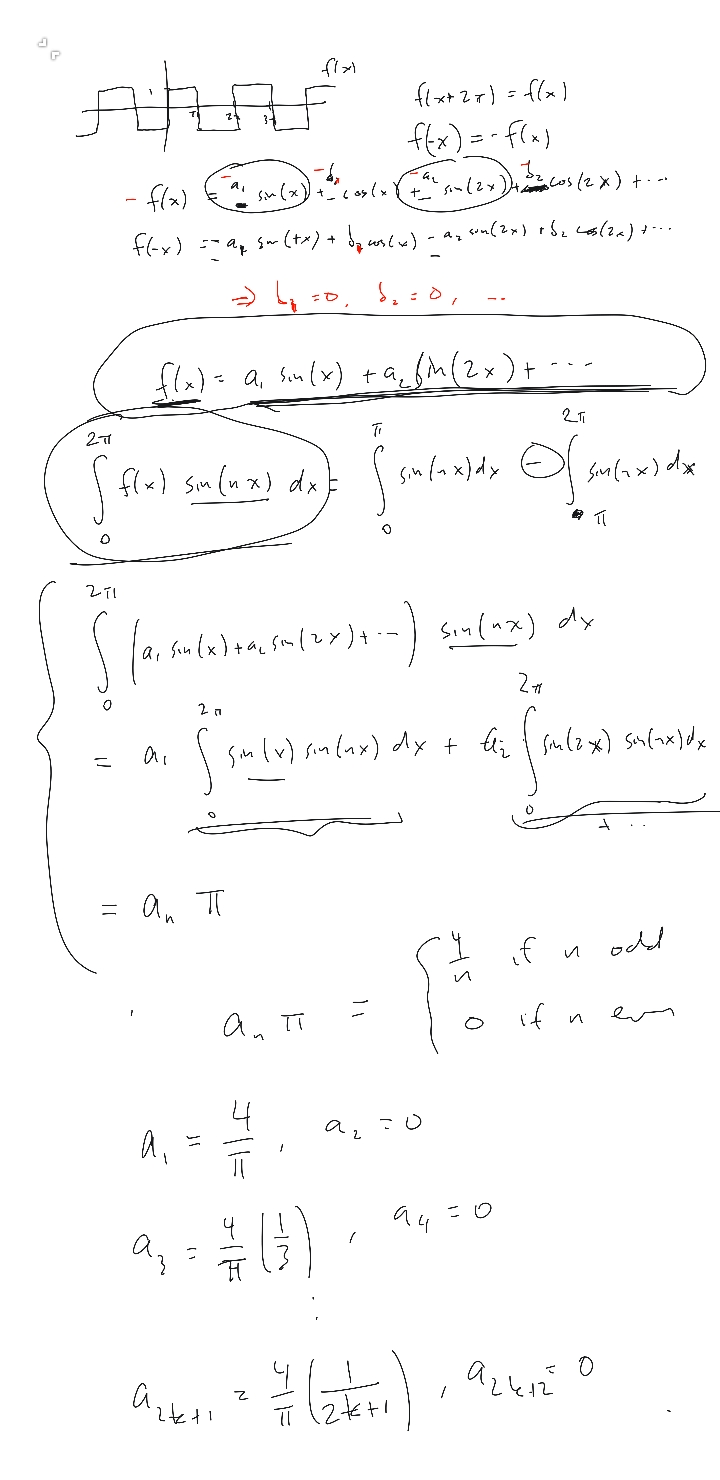 f(x)
1 π 2π 3π
f(x+2π) = f(x)
f(-x) = -f(x)
- f(x) = - a₁ sin(x) + - b₁ cos(x) + - a₂ sin(2x) + - b₂ cos(2x) + ...
f(-x) = - a₁ sin(+x) + b₁ cos(x) - a₂ sin(2x) + b₂ cos(2x) + ...
⇒ b₁ = 0, b₂ = 0, ...
f(x) = a₁ sin(x) + a₂ sin(2x) + ...
∫₀^{2π} f(x) sin(nx) dx = ∫₀^{π} sin(nx) dx - ∫_{π}^{2π} sin(nx) dx
∫₀^{2π} (a₁ sin(x) + a₂ sin(2x) + ...) sin(nx) dx
= a₁ ∫₀^{2π} sin(x) sin(nx) dx + a₂ ∫₀^{2π} sin(2x) sin(nx) dx
+ ...
= aₙ π
aₙ π = { 4/n if n odd
0 if n even
a₁ = 4/π , a₂ = 0
a₃ = 4/π (1/3) , a₄ = 0
⋮
a_{2k+1} = 4/π (1/(2k+1)) , a_{2k+2} = 0